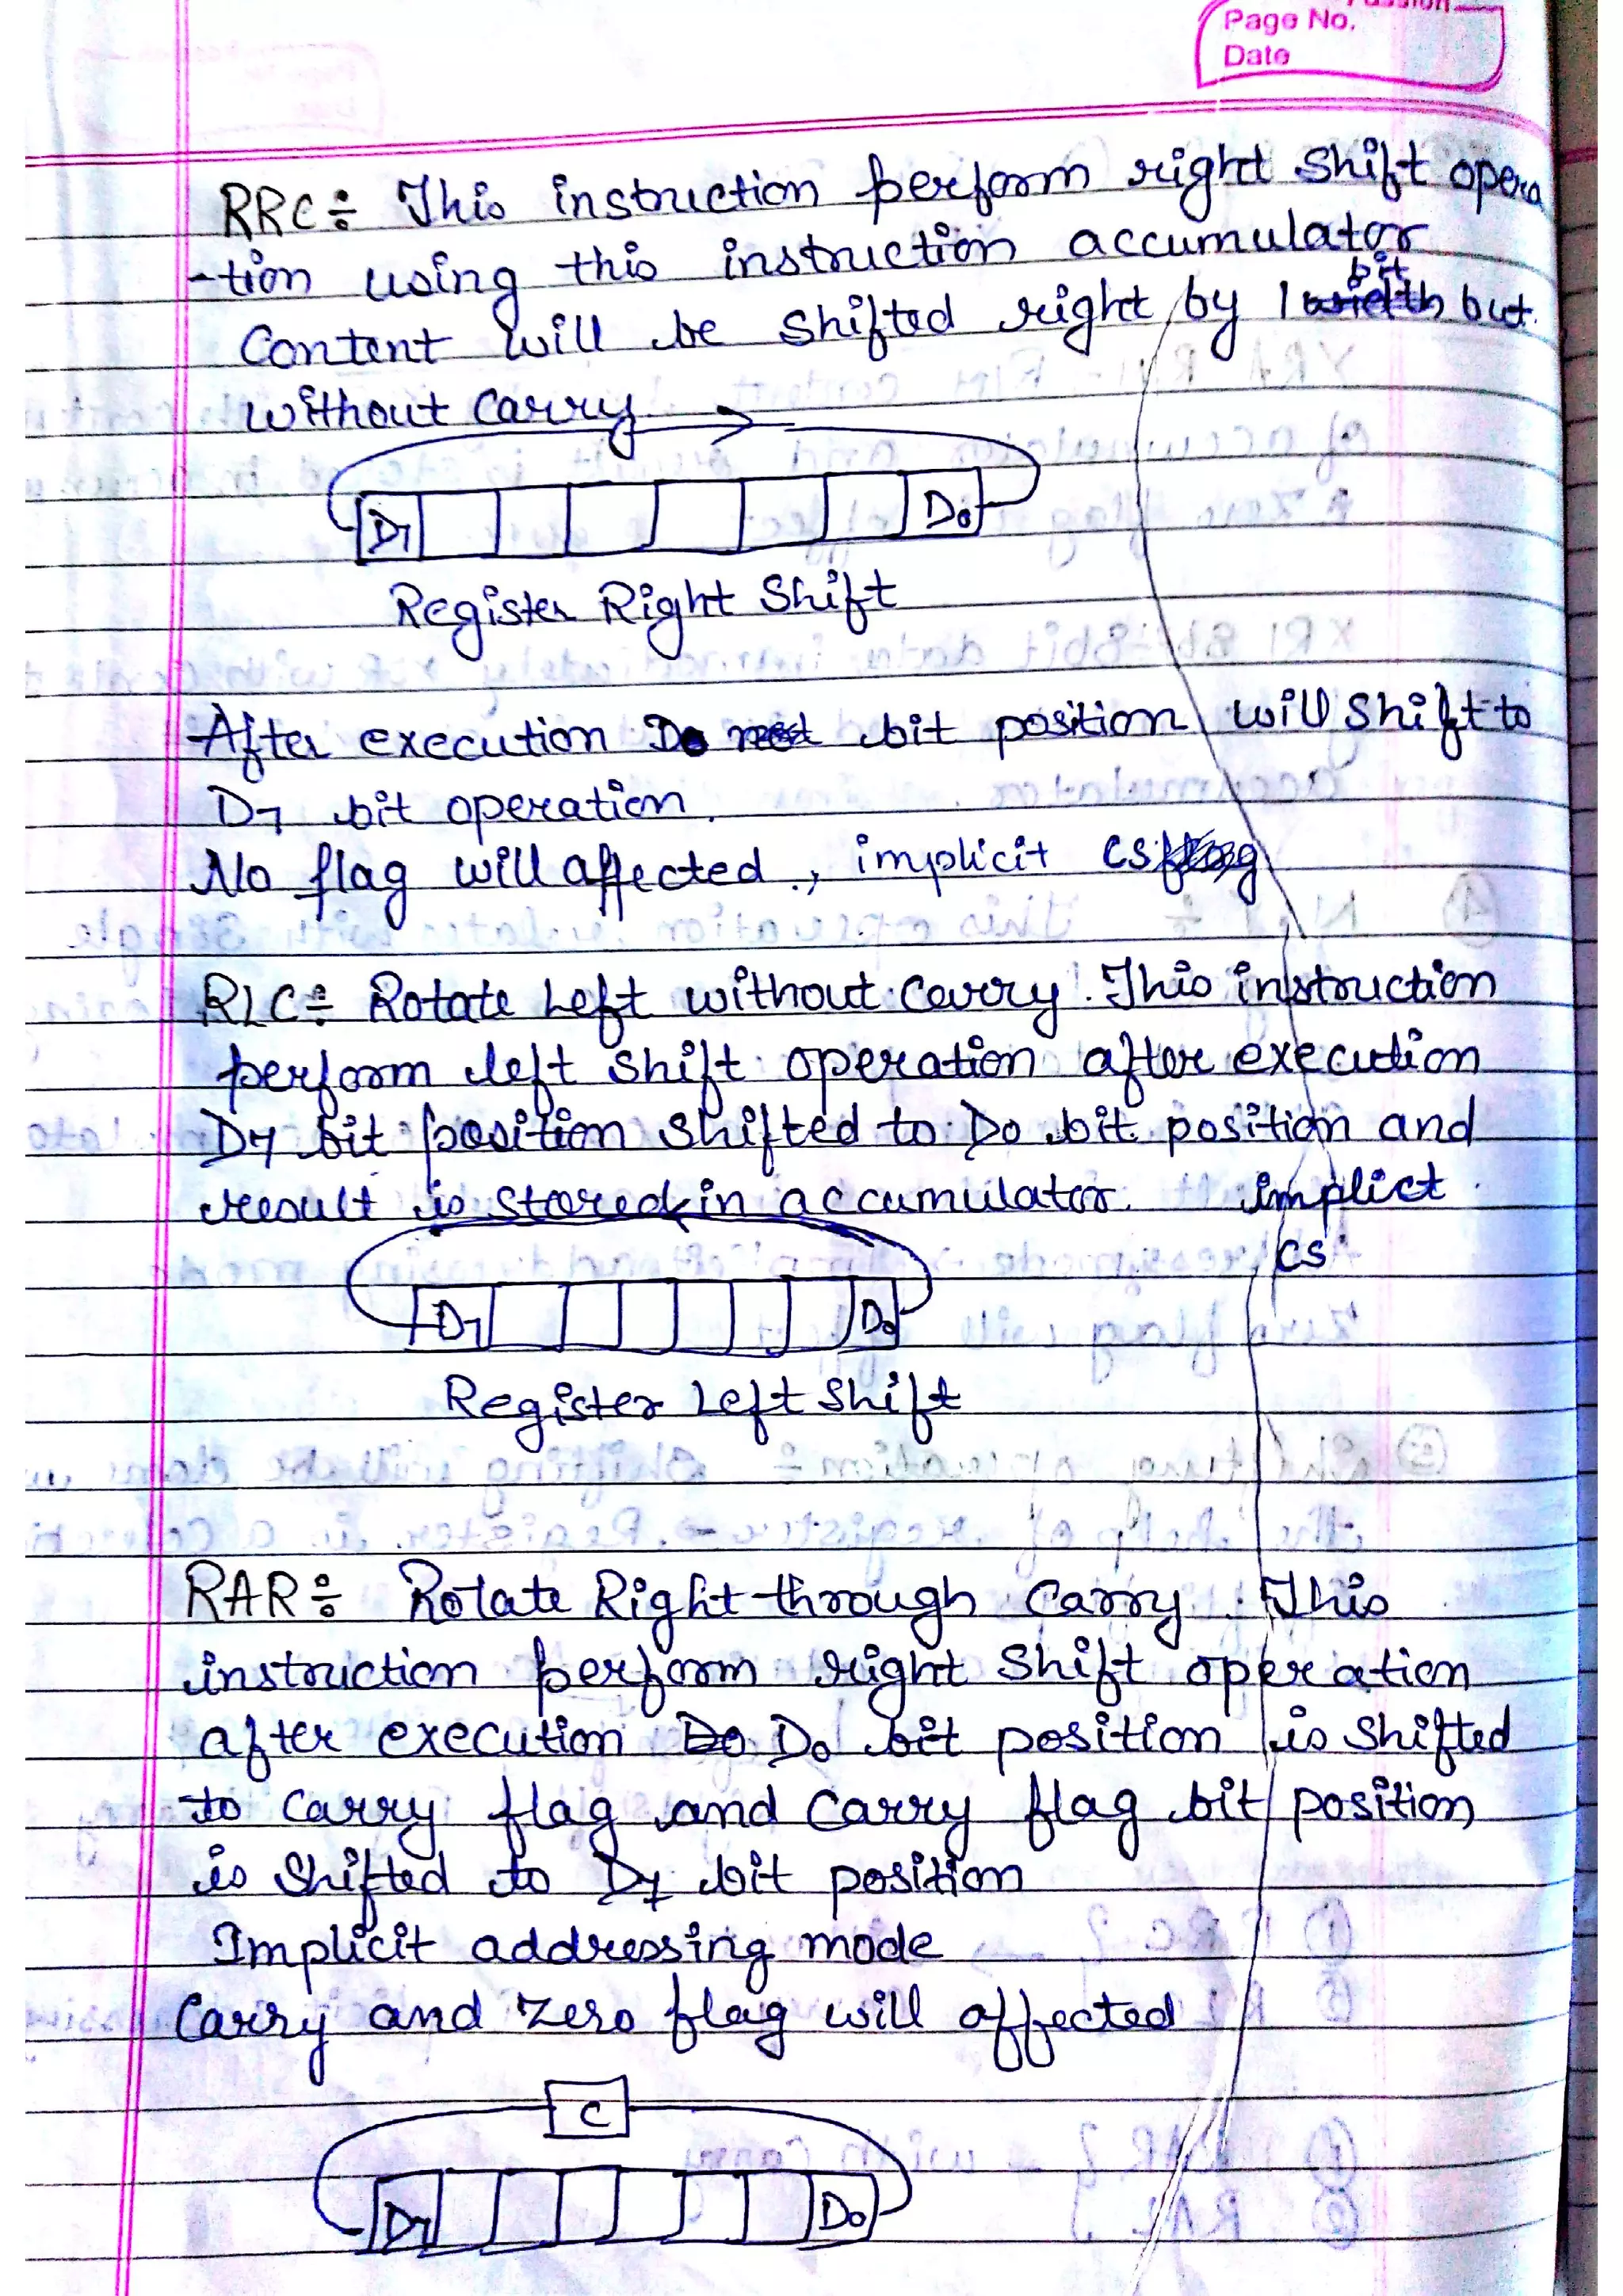 Page No.
Date
RRC÷ This instruction perform right shift opera
-tion using this instruction accumulator
bit
Content will be shifted right by 1 width but
without carry
D7 D0
Register Right Shift
After execution D0 bit position will shift to
D7 bit operation.
No flag will affected, implicit CS flag
RLC÷ Rotate Left without carry. This instruction
perform left shift operation after execution
D7 bit position shifted to D0 bit position and
result is stored in accumulator. implict
CS
D7 D0
Register Left Shift
RAR÷ Rotate Right through carry. This
instruction perform right shift operation
after execution D0 D0 bit position is shifted
to carry flag and carry flag bit position
is shifted to D7 bit position
Implicit addressing mode
Carry and zero flag will affected
C
D7 D0